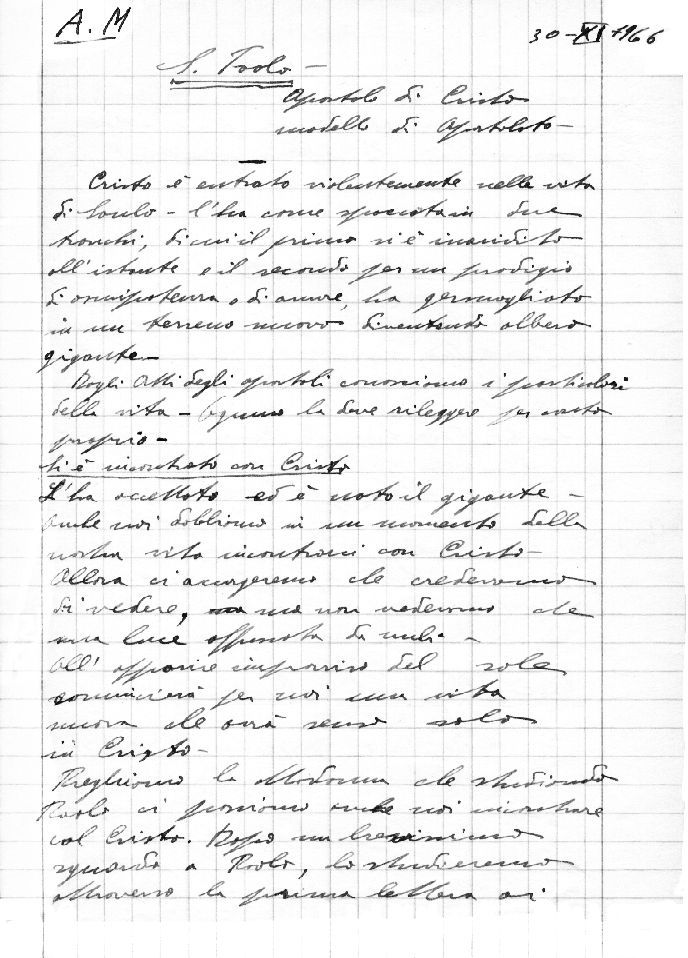 A. M
30-XI-1966
S. Paolo -
Apostolo di Cristo
modello di Apostolato -
Cristo è entrato violentemente nella vita
di Saulo - l'ha come spaccata in due
tronchi, di cui il primo si è inaridito
all'istante e il secondo per un prodigio
di onnipotenza e di amore, ha germogliato
in un terreno nuovo diventando albero
gigante -
Dagli Atti degli apostoli conosciamo i particolari
della vita - Ognuno la deve rileggere per conto
proprio -
Si è incontrato con Cristo
L'ha accettato ed è nato il gigante -
Anche noi dobbiamo in un momento della
nostra vita incontrarci con Cristo -
Allora ci accorgeremo che credevamo
di vedere, ma non vedevamo che
una luce offuscata da nubi -
All'apparire improvviso del sole
comincierà per noi una vita
nuova che avrà senso solo
in Cristo -
Preghiamo la Madonna che studiando
Paolo ci possiamo anche noi incontrare
col Cristo. Dopo un brevissimo
sguardo a Paolo, lo studieremo
attraverso la prima lettera ai